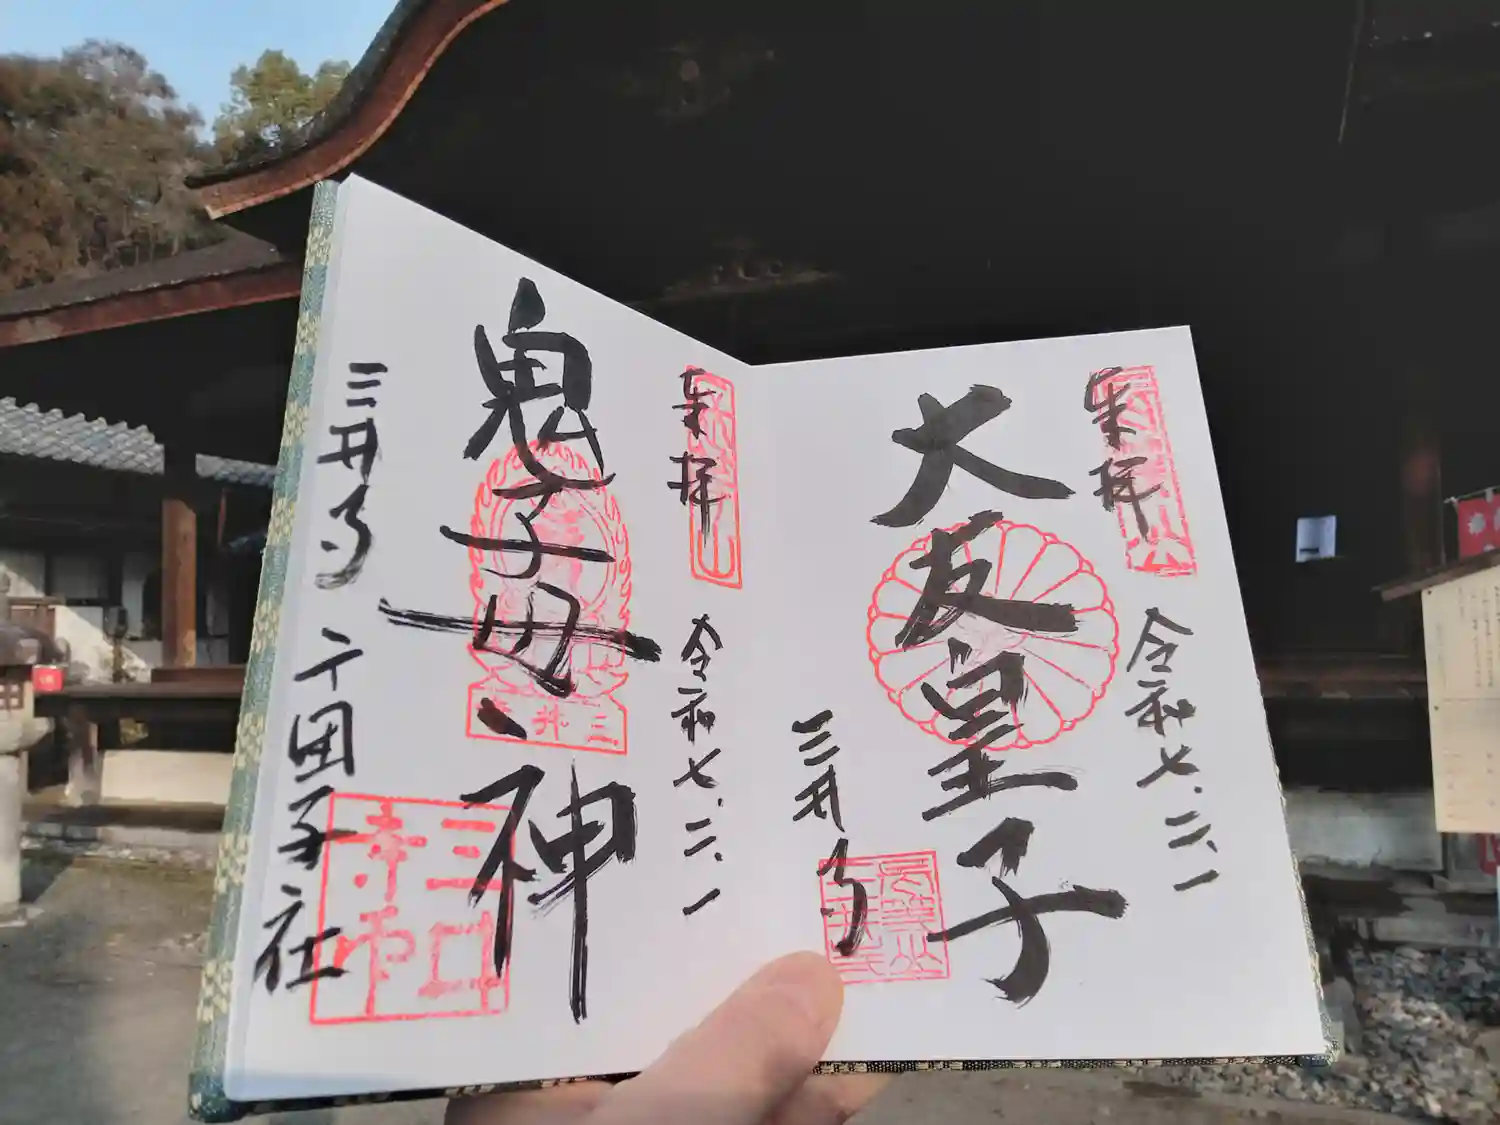 奉拝
令和七、二、一
大友皇子
三井寺
奉拝
令和七、二、一
鬼子母神
三井寺
十団子社
三井寺印
三井寺